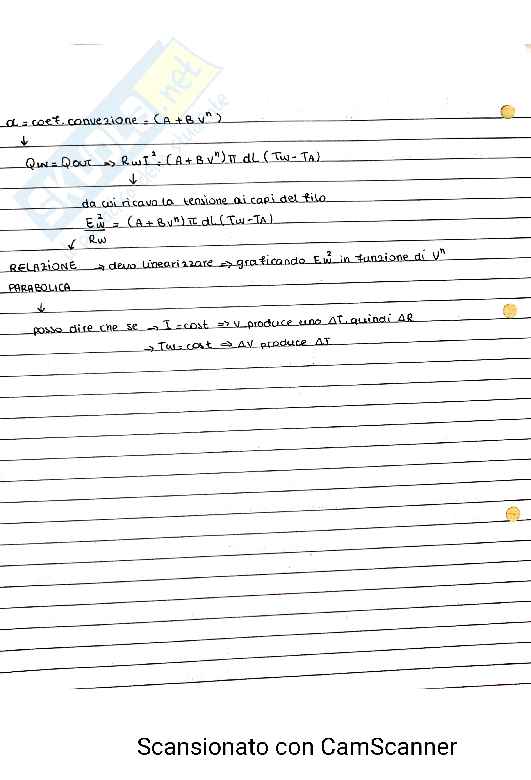 α = coef. convezione = (A + B vⁿ)
↓
Qin = Qout ⇒ Rw I² = (A + B vⁿ) π dL (Tw - TA)
↓
da cui ricavo la tensione ai capi del filo
Ew²/Rw = (A + B vⁿ) π dL (Tw - TA)
↙
RELAZIONE → devo linearizzare ⇒ graficando Ew² in funzione di vⁿ
PARABOLICA
↓
posso dire che se → I = cost ⇒ v produce uno ΔT, quindi ΔR
→ Tw = cost ⇒ ΔV produce ΔT
SKUOLA.net
Scansionato con CamScanner